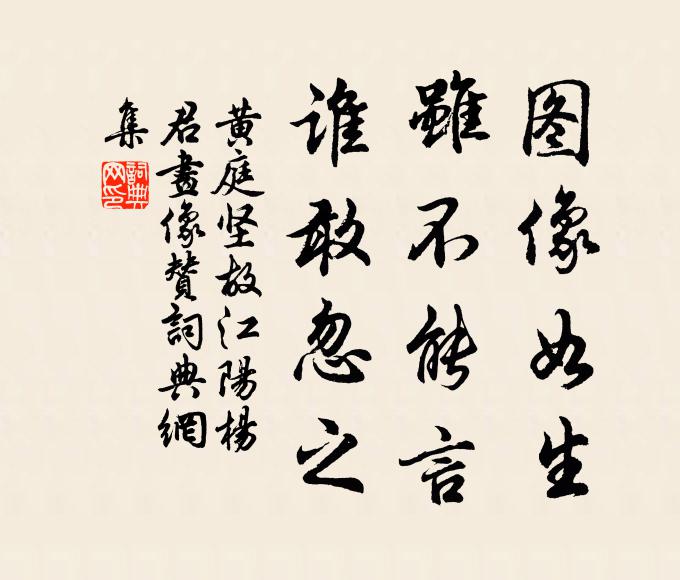 图像如生
雖不能言
誰敢忽之
黄庭坚故江陽楊
君畫像贊詞典網
集
詞典
网印